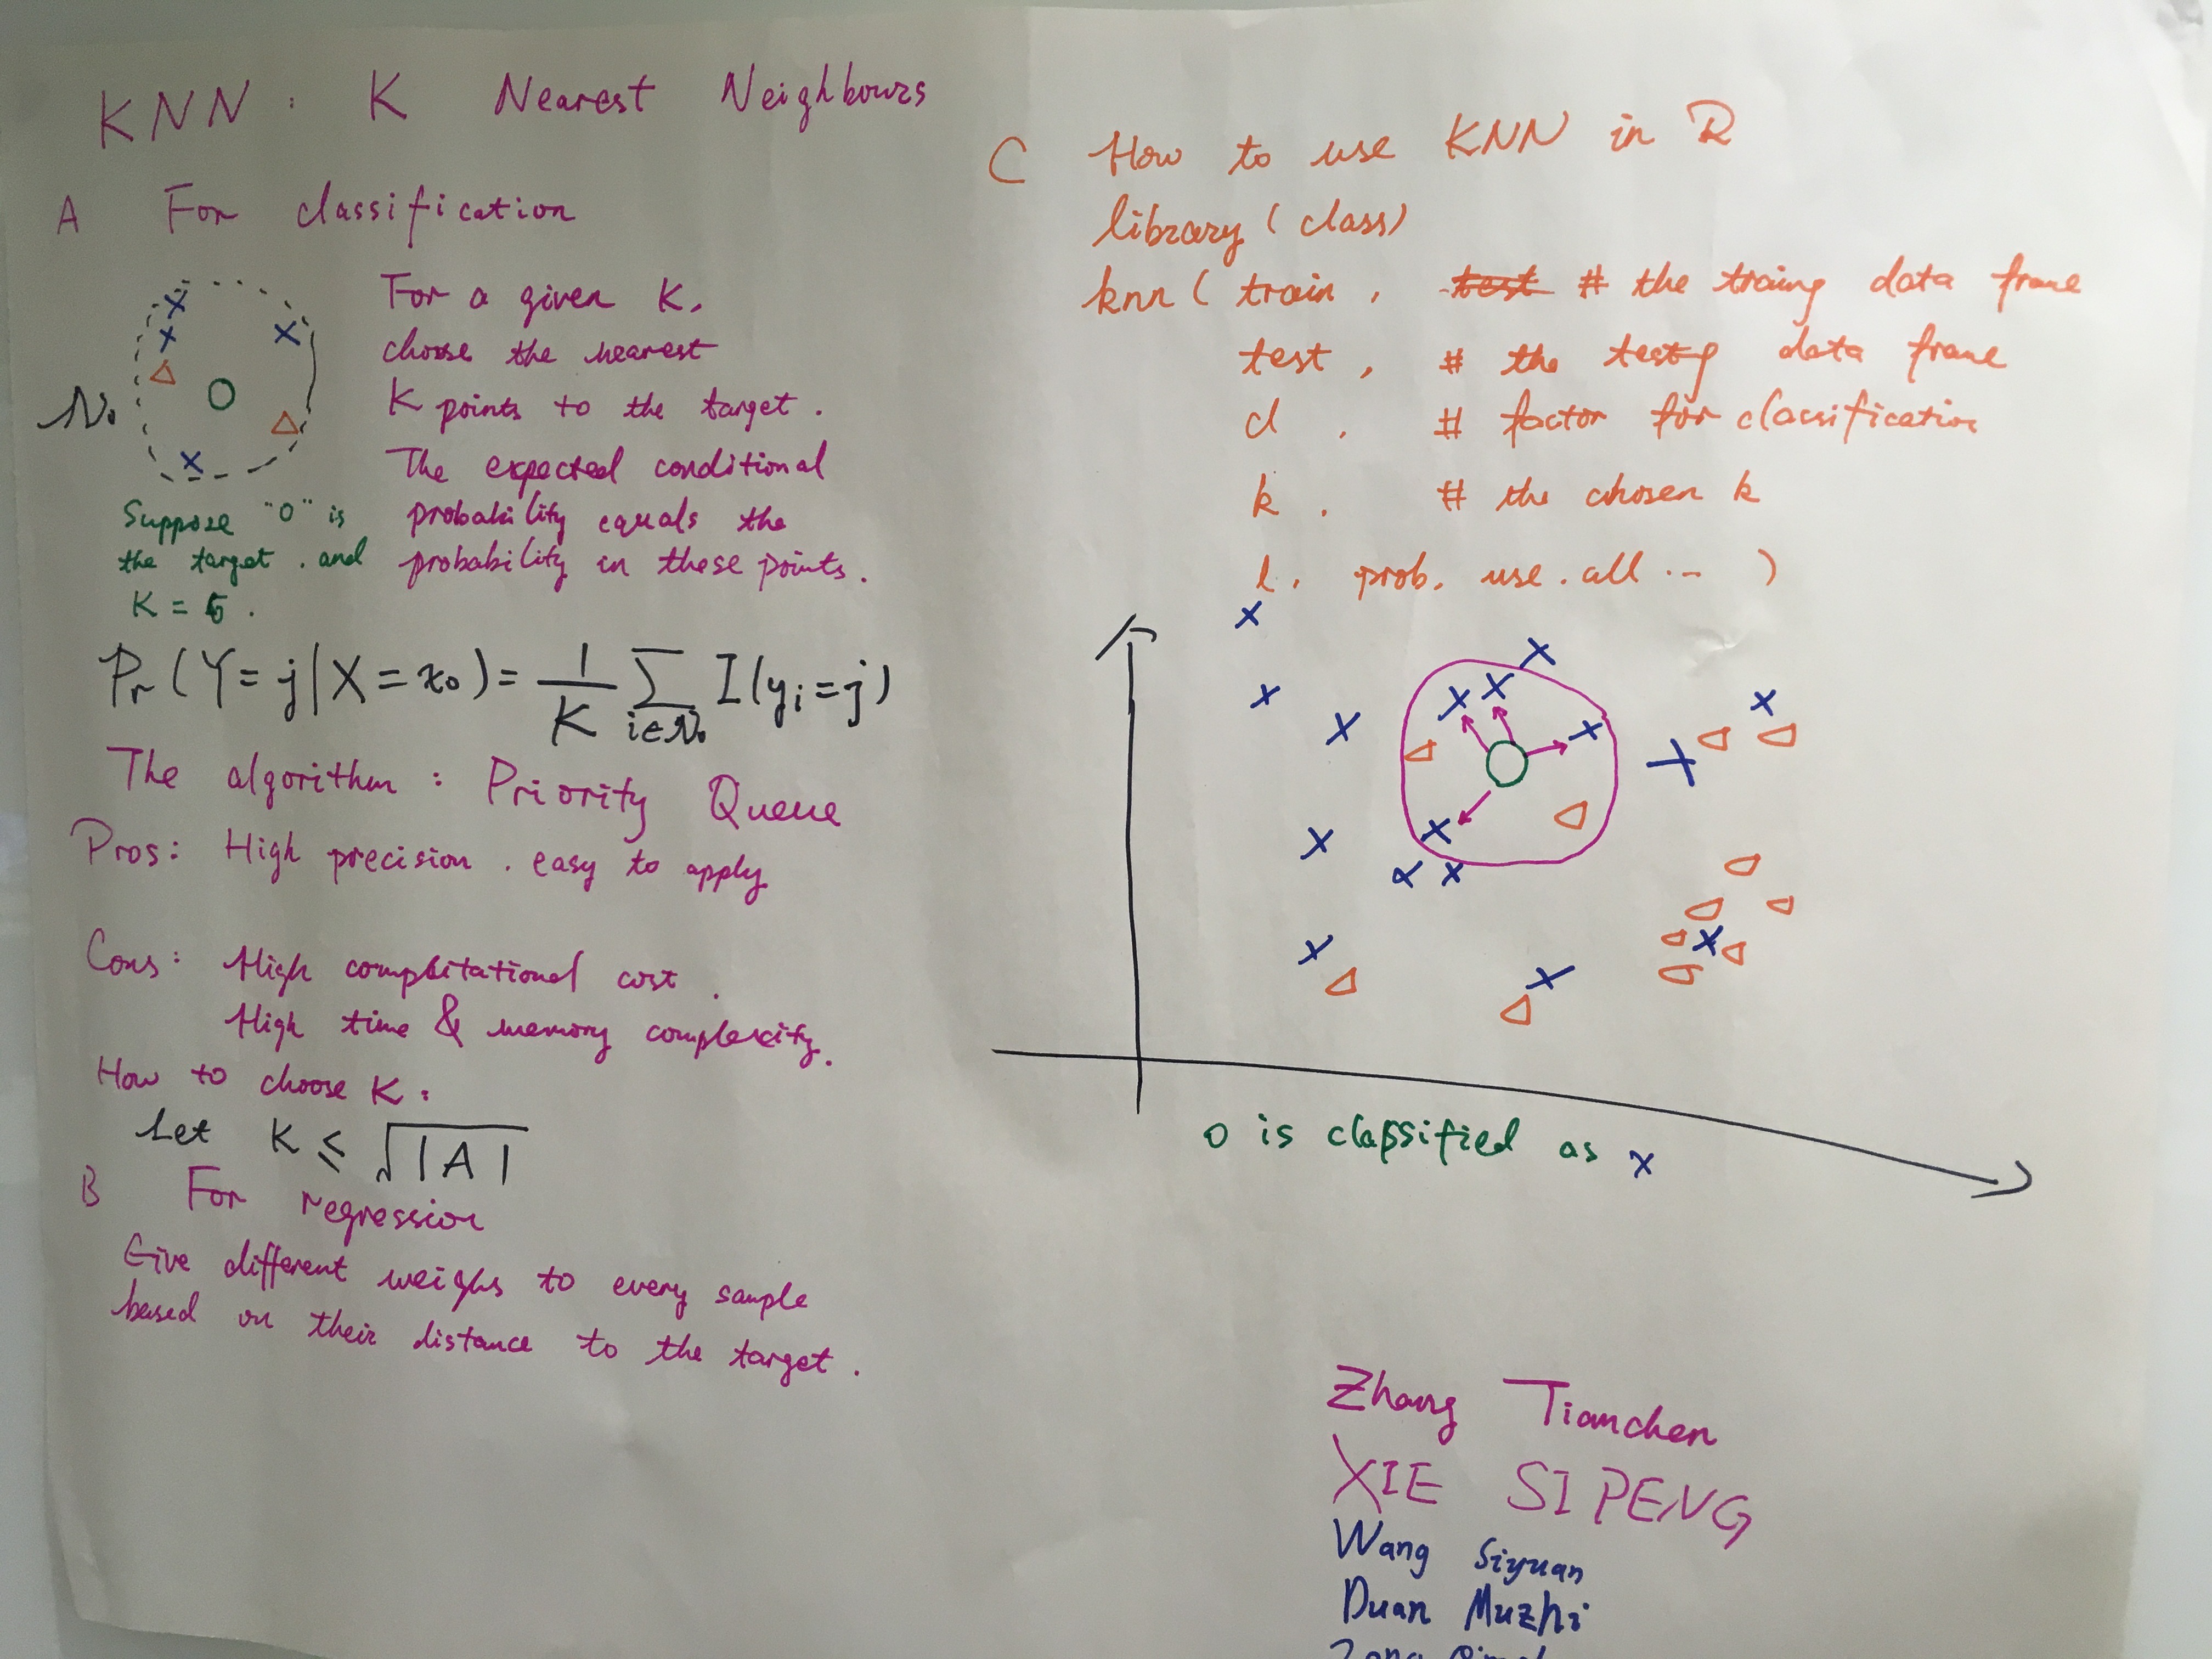 KNN : K Nearest Neighbours
A For classification
N₀
For a given K,
choose the nearest
K points to the target.
The expected conditional
probability equals the
probability in these points.
Suppose "O" is
the target, and
K = 6.
Pr(Y = j | X = x₀) = 1/K ∑ i∈N₀ I(yᵢ = j)
The algorithm : Priority Queue
Pros: High precision, easy to apply
Cons: High computational cost.
High time & memory complexity.
How to choose K:
Let K ≤ √|A|
B For regression
Give different weighs to every sample
based on their distance to the target.
C How to use KNN in R
library (class)
knn ( train, test # the traing data frame
test, # the testg data frame
cl, # factor for classification
k, # the chosen k
l, prob, use.all ... )
O is classified as x
Zhang Tianchen
XIE SIPENG
Wang Siyuan
Duan Muzhi